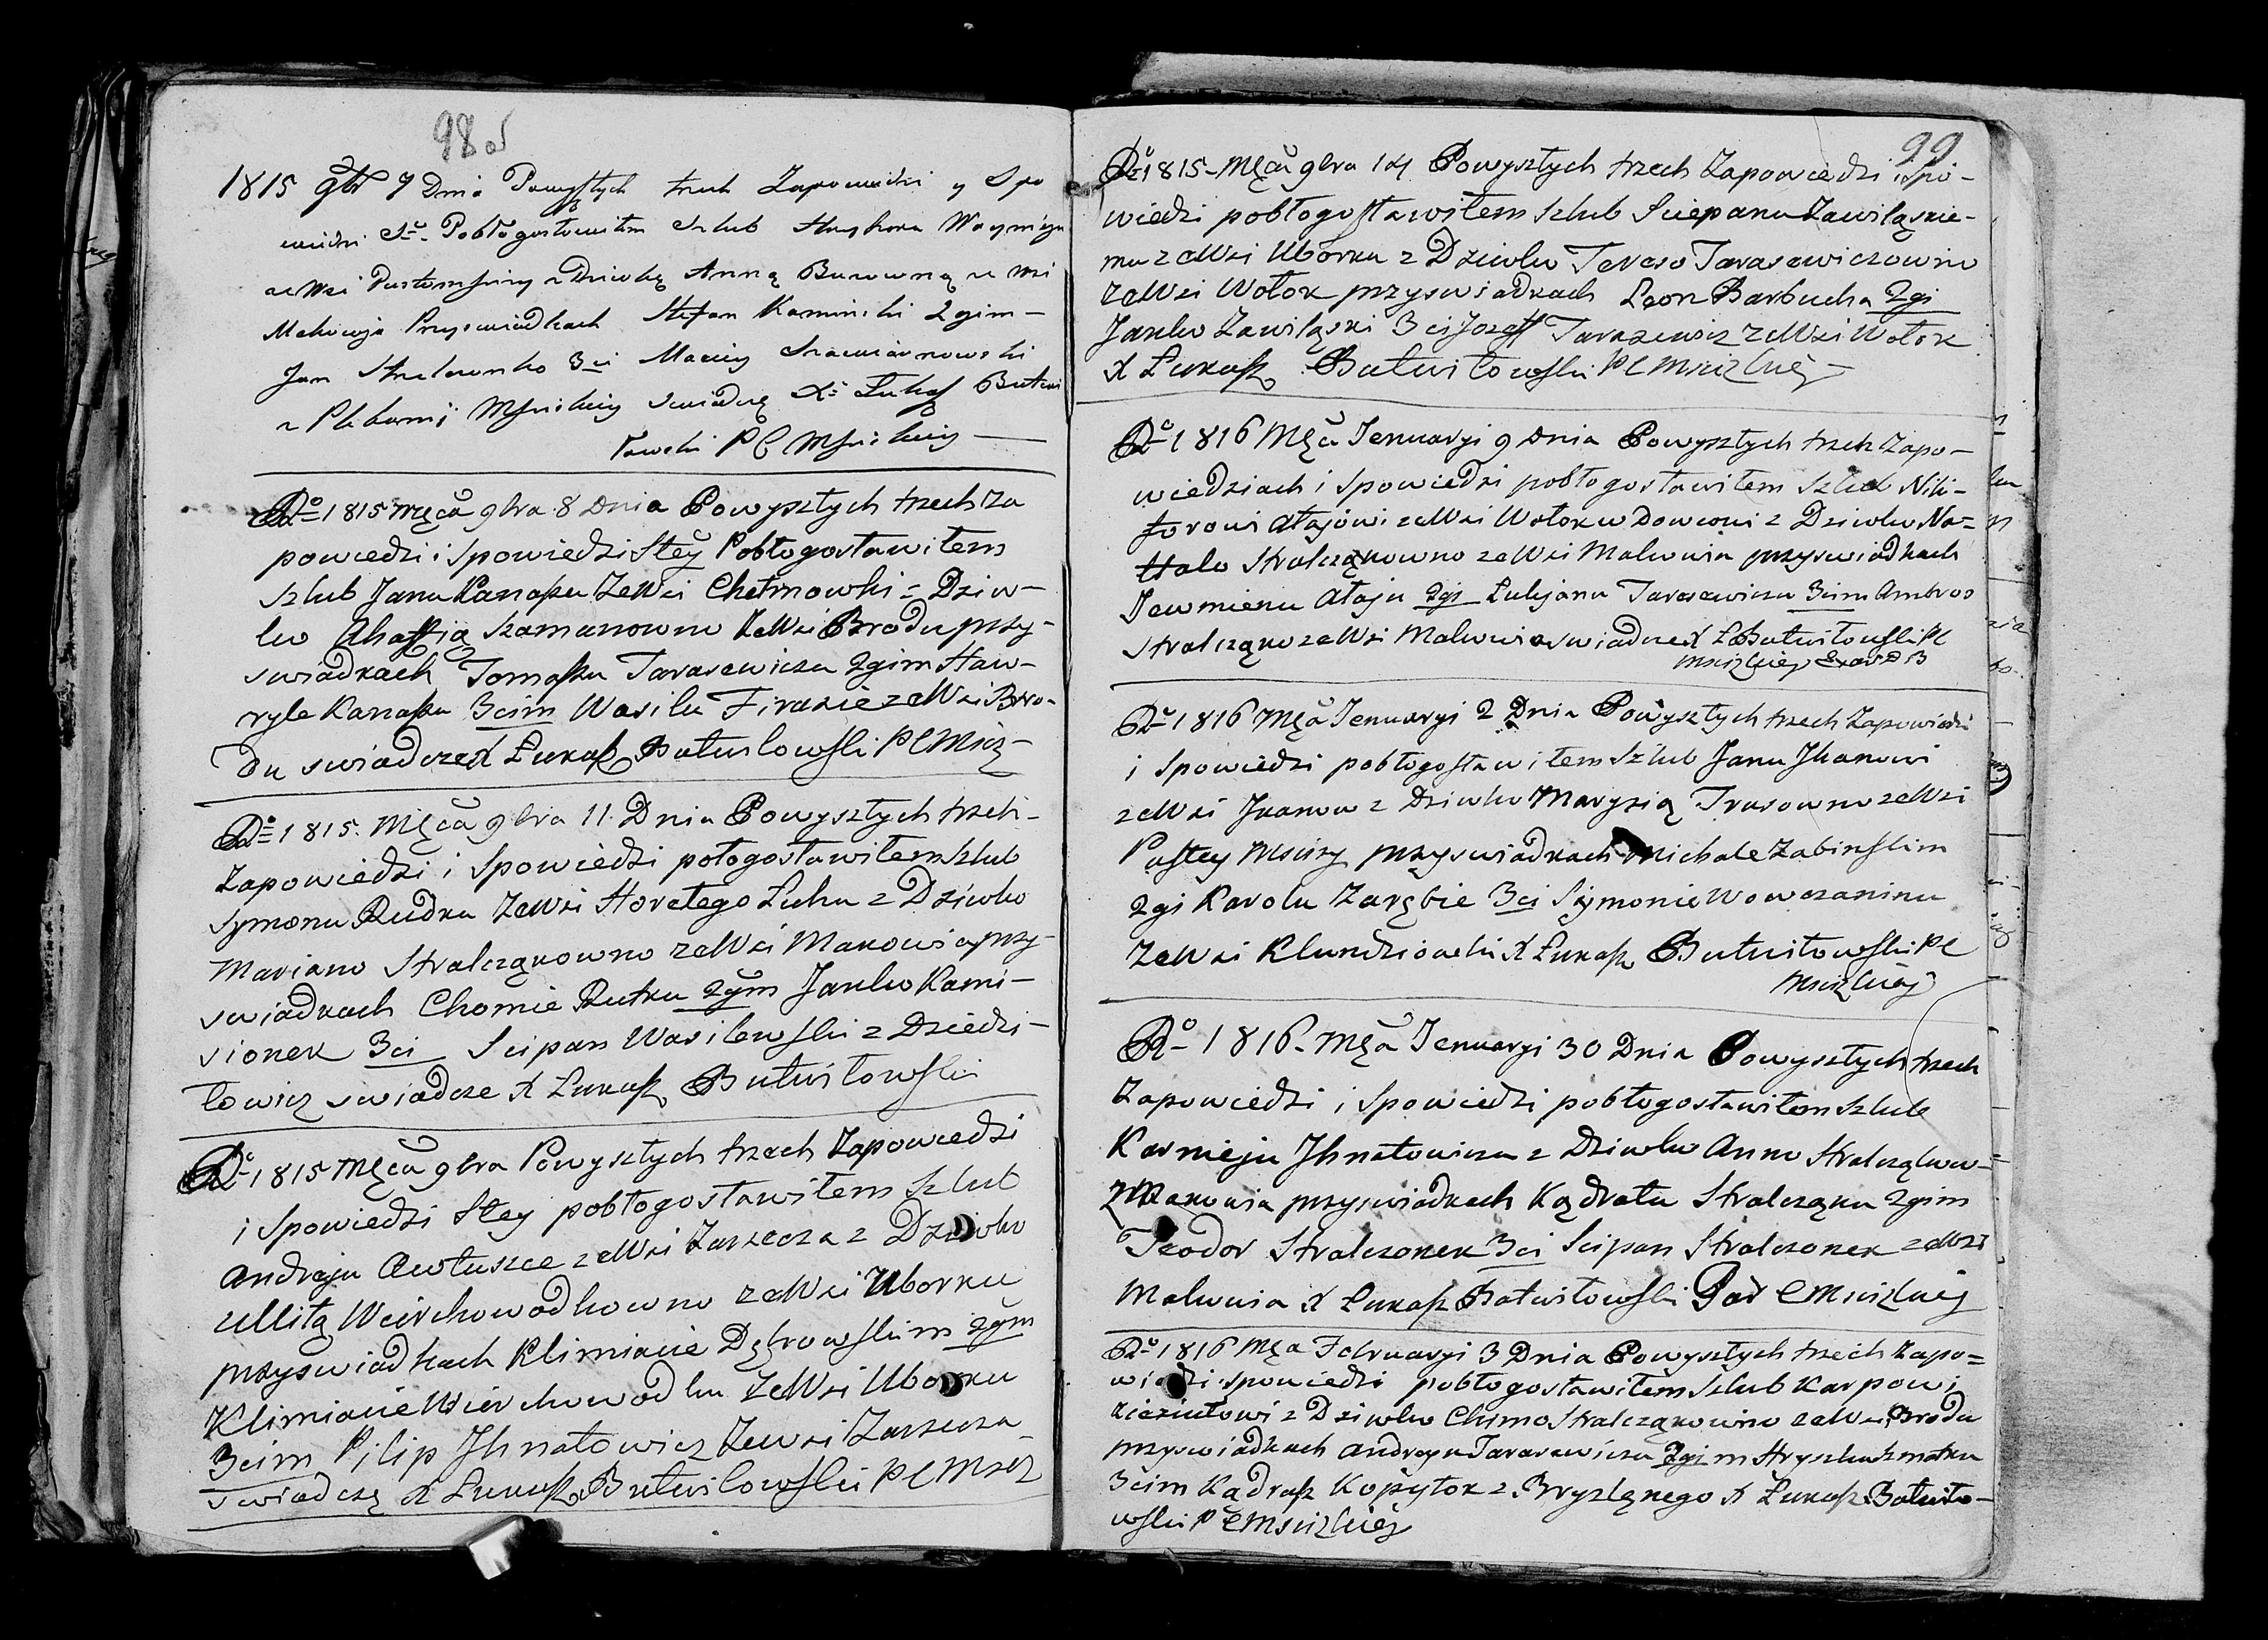 98 of
1815 9br 7 Dnia Powyszłych trzech Zapowiedzi y Spo
wiedzi S. Pobłogosławiłem Szlub Hryhora
ze Wsi z Dziewką Anną Burowną ze Wsi
Makowja Przyswiadkach Stefan Kaminski 2gim
Jan 3ci Maciey
z Plebanii Mscickiey swiadczę X Łukasz Butwi
łowski P C Mscickiey
Ro 1815 Męca 9bra 8 Dnia Powyszłych trzech za
powiedzi i Spowiedzi Stey Pobłogosławiłem
szlub Janu Kanaszu ze Wsi Chełmowski z Dziw-
ko Ahaffią Szamanowno ze Wsi Brodu przy-
swiadkach Tomaszu Tarasewiczu 2gim Haw-
ryle Kanaszu 3cim Wasilu Firazie ze Wsi Bro-
du swiadcze X Łukasz Butwiłowski P C Mscz
Ro 1815. Męca 9bra 11. Dnia Powyszłych trzech
Zapowiedzi i Spowiedzi połogosławiłem szlub
Symonu Rudku ze Wsi Horełego Łuhu z Dziwko
Mariano Stralcząkowno ze Wsi Makowia przy-
swiadkach Chomie Rutku 2gim Janko Kami-
sionek 3ci Scipan Wasilewski z Dziedzi-
łowicz swiadcze X Łukasz Butwiłowski
Ro 1815 Męca 9bra Powyszłych trzech Zapowiedzi
i Spowiedzi Stey pobłogosławiłem Szlub
Andreju Awłuszce ze Wsi Zarzecza z Dziwko
Ullitą Wierchowodkowno ze Wsi Uborku
przyswiadkach Klimiacie Dąbrowskim 2gim
Klimiacie Wierchowodku ze Wsi Uborku
3cim Pilip Jhnatowicz ze Wsi Zarzecza
swiadczę X Łukasz Butwilowski P C Mscz
99
Ro 1815 Męca 9bra 14 Powyszłych trzech Zapowiedzi i Spo-
wiedzi pobłogosławiłem szlub Sciepanu Zawiląskie-
mu ze Wsi Uborku z Dziwko Tereso Tarasewiczowno
ze Wsi Wołok przyswiadkach Leon Barbucha 2gi
Janko Zawiląski 3ci Jozeff Tarazewicz ze Wsi Wołok
X Łukasz Butwiłowski P C Mscizkiey
Ro 1816 Męca Jenuaryi 9 Dnia Powyszłych trzech Zapo-
wiedziach i Spowiedzi pobłogosławiłem Szlub Niki-
forowi Ałajowi ze Wsi Wołok wdowcowi z Dziwko Na-
ttalo Stralcząkowno ze Wsi Malkowia przyswiadkach
Jewmienu Ałaju 2gi Łukjanu Tarasewiczu 3cim Ambroo
Stralcząko ze Wsi Malkowia swiadcze X Ł Butwiłowski P C
Mscizkiey
Ro 1816 Męca Jenuaryi 2 Dnia Powyszłych trzech Zapowiedzi
i Spowiedzi pobłogosławiłem Szlub Janu Jkanowi
ze Wsi Jkanow z Dziwko Marysią Trusowno ze Wsi
Pustey Mscizy przyswiadkach Michale Zabinskim
2gi Karolu Zarębie 3ci Symonie Wowczaninu
ze Wsi X Łukasz Butwiłowski P C
Mscizkiej
Ro 1816. Męca Jenuaryi 30 Dnia Powyszłych trzech
Zapowiedzi i Spowiedzi pobłogosławiłem szlub
Karnieju Jhnatowiczu z Dziwko Anno Stralcząkow-
z Makowia przyswiadkach Kądratu Stralcząku 2gim
Teodor Stralczonek 3ci Scipan Stralczonek ze Wsi
Malkowia X Łukasz Butwiłowski Par C Mscizkiej
Ro 1816 Męca Februaryi 3 Dnia Powyszłych trzech Zapo=
wiedzi spowiedzi pobłogosławiłem Szlub Karpowi
z Dziwko Chimo Stralcząkowno ze Wsi Brodu
przyswiadkach Andreju Tarasewiczu 2gim
3cim Kądrasz Kopytok z X Łukasz Butwiło-
wski P C Mscizkiej